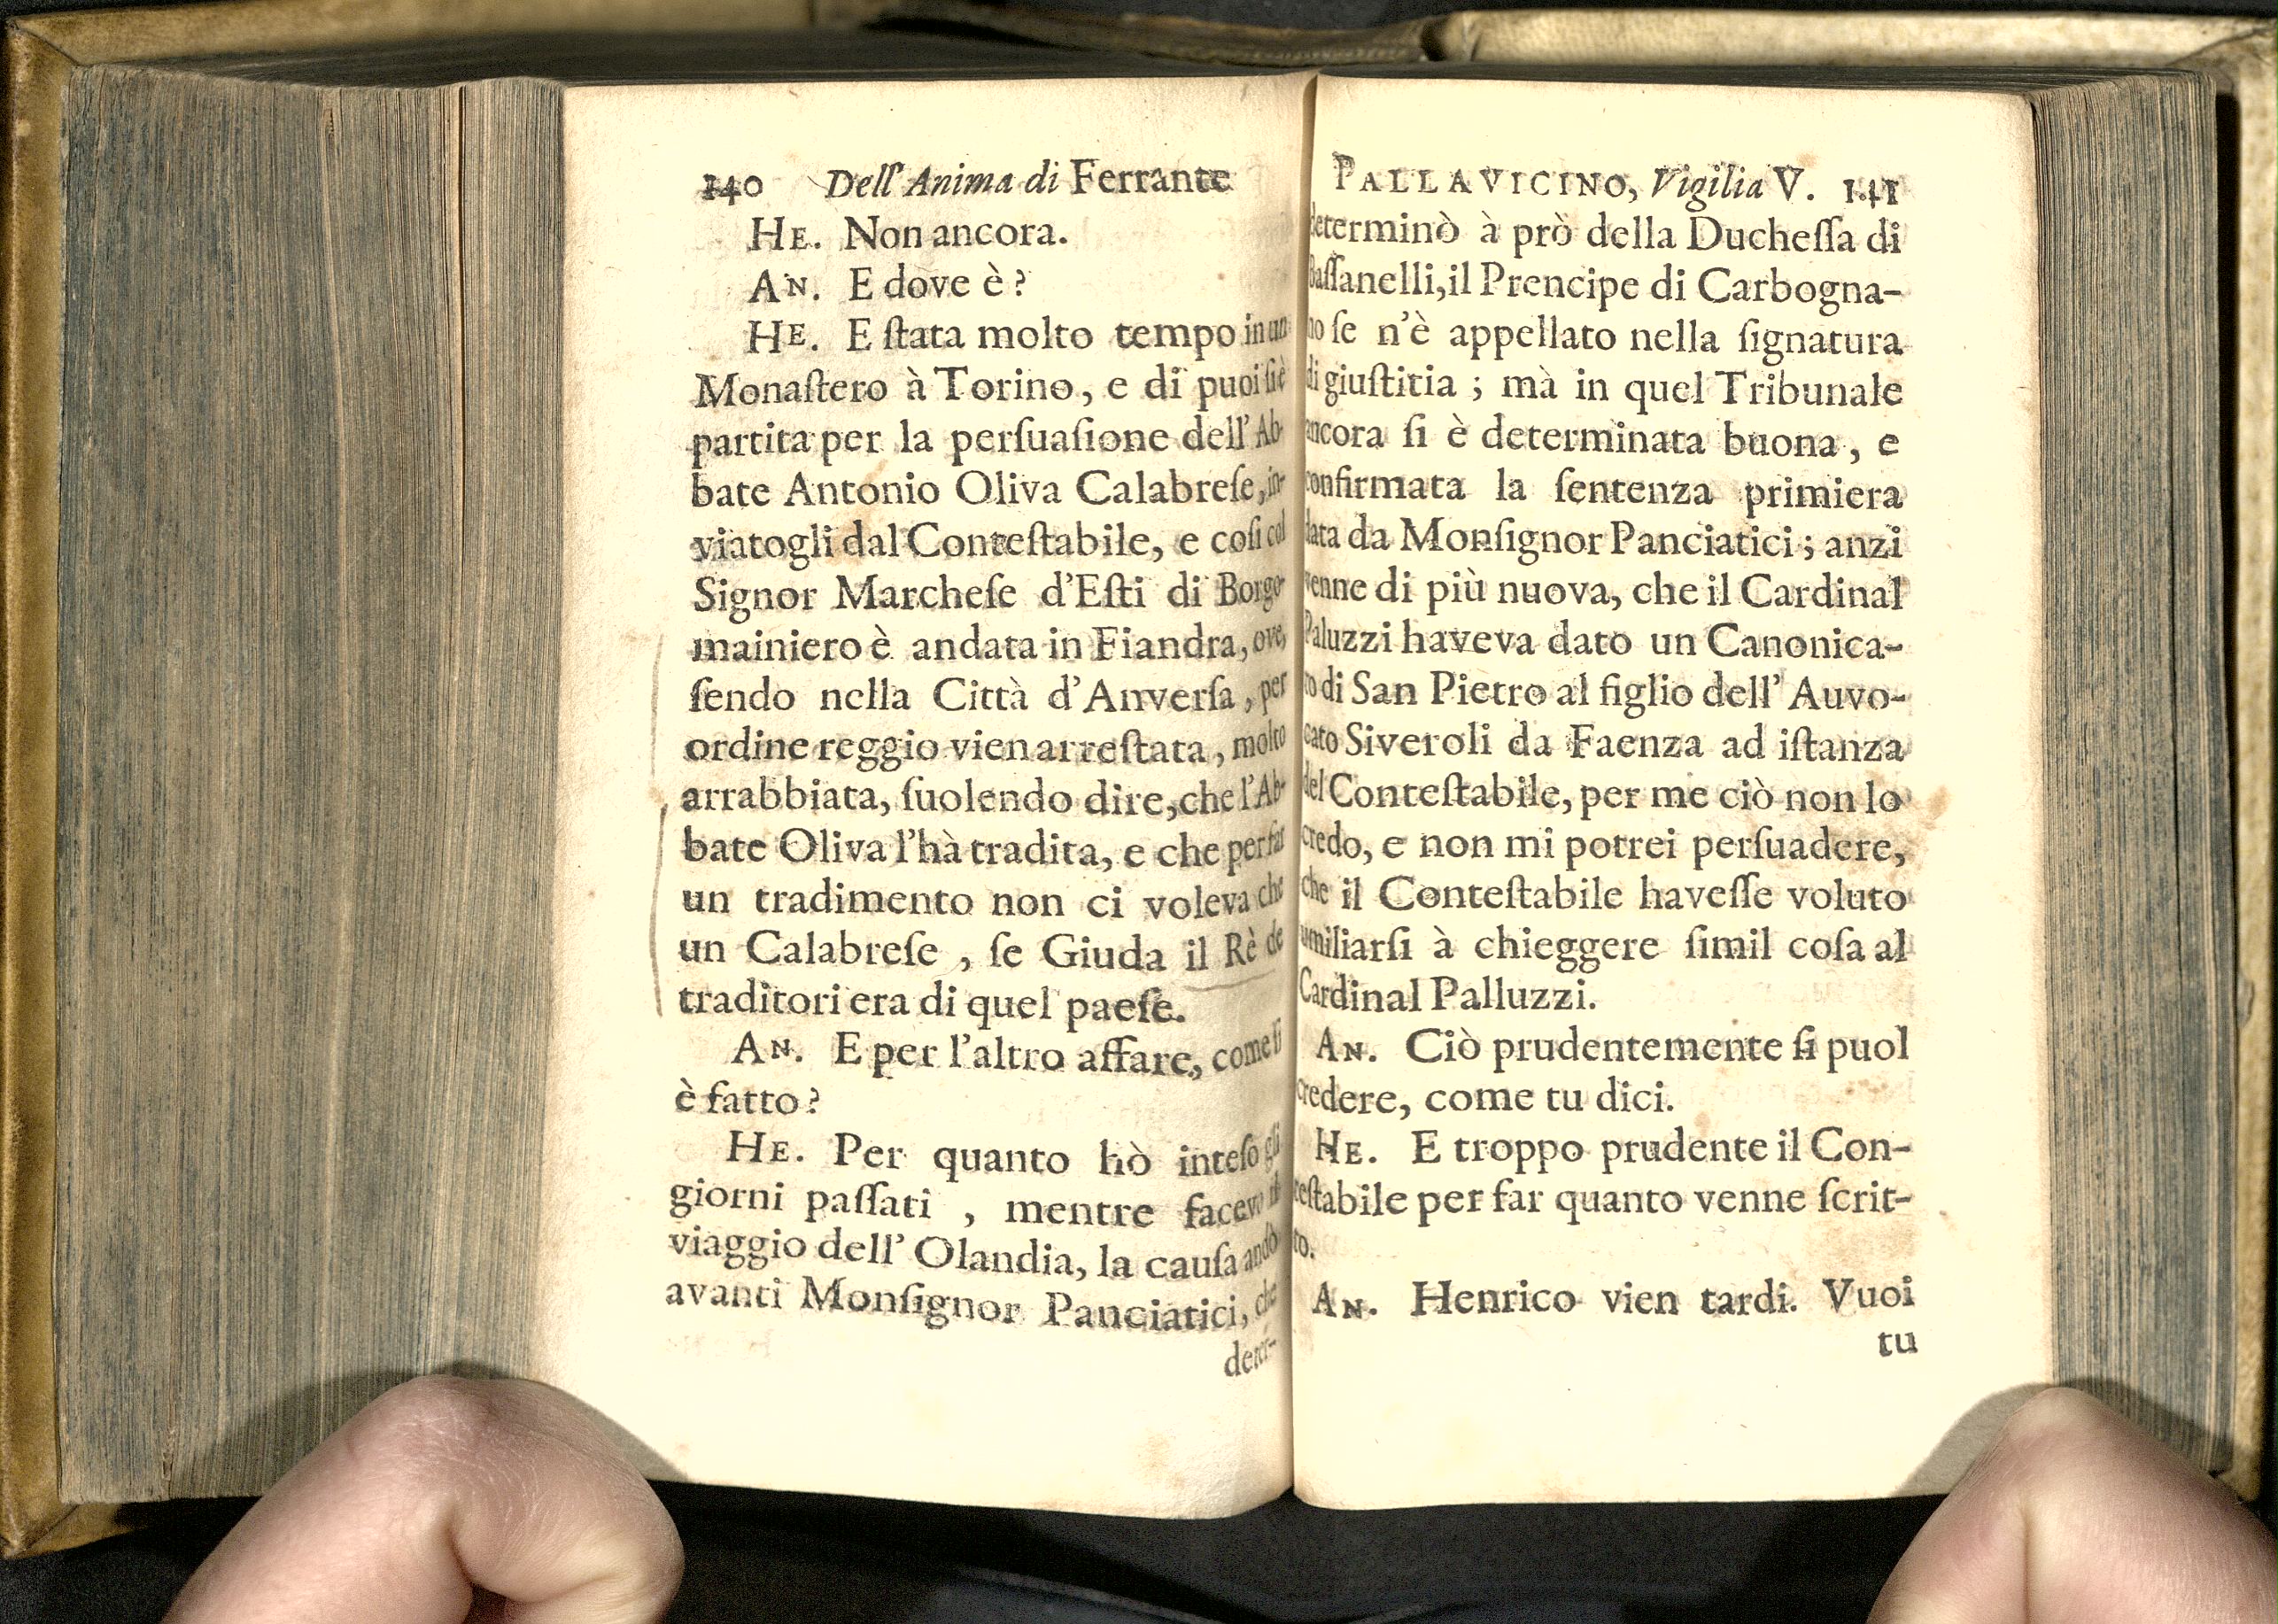 140 Dell' Anima di Ferrante
HE. Non ancora.
AN. E dove è?
HE. E ſtata molto tempo in un
Monaſtero à Torino, e di puoi ſi è
partita per la perſuaſione dell' Ab-
bate Antonio Oliva Calabreſe, in-
viatogli dal Conteſtabile, e coſi col
Signor Marcheſe d'Eſti di Borgo-
mainiero è andata in Fiandra, ove,
ſendo nella Città d'Anverſa, per
ordine reggio vien arreſtata, molto
arrabbiata, ſuolendo dire, che l'Ab-
bate Oliva l'hà tradita, e che per far
un tradimento non ci voleva che
un Calabreſe, ſe Giuda il Rè de
traditori era di quel paeſe.
AN. E per l'altro affare, come ſi
è fatto?
HE. Per quanto hò inteſo gli
giorni paſſati, mentre facevo
viaggio dell' Olandia, la cauſa andò
avanti Monſignor Panciatici, che
deter-
PALLAVICINO, Vigilia V. 141
determinò à prò della Ducheſſa di
Baſſanelli, il Prencipe di Carbogna-
no ſe n'è appellato nella ſignatura
di giuſtitia; mà in quel Tribunale
ancora ſi è determinata buona, e
confirmata la ſentenza primiera
data da Monſignor Panciatici; anzi
venne di più nuova, che il Cardinal
Paluzzi haveva dato un Canonica-
to di San Pietro al figlio dell' Auvo-
cato Siveroli da Faenza ad iſtanza
del Conteſtabile, per me ciò non lo
credo, e non mi potrei perſuadere,
che il Conteſtabile haveſſe voluto
umiliarſi à chieggere ſimil coſa al
Cardinal Palluzzi.
AN. Ciò prudentemente ſi puol
credere, come tu dici.
HE. E troppo prudente il Con-
teſtabile per far quanto venne ſcrit-
to.
AN. Henrico vien tardi. Vuoi
tu